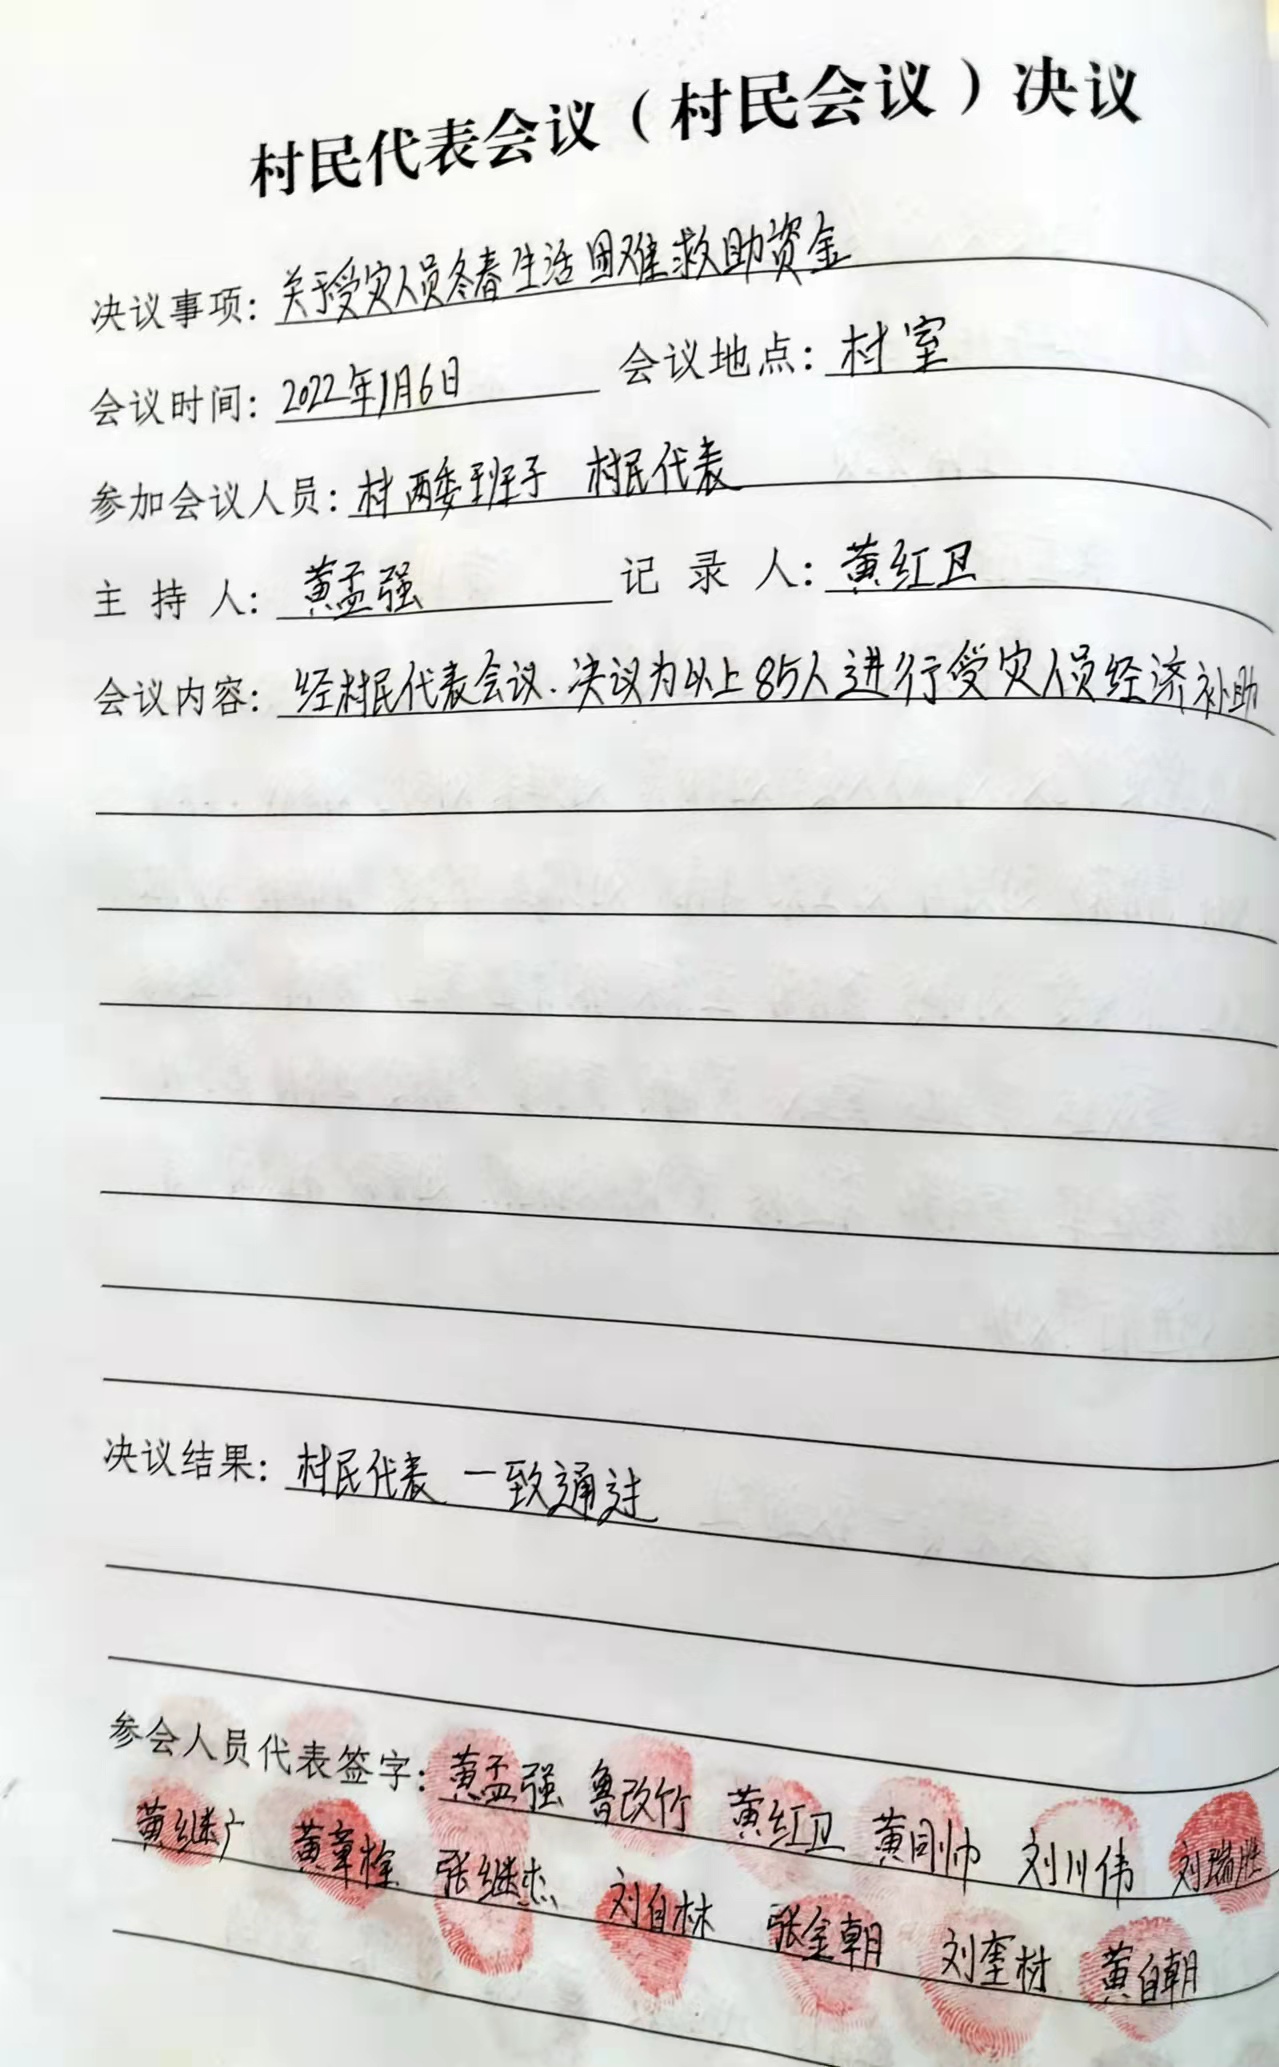 村民代表会议（村民会议）决议
决议事项：关于受灾人员冬春生活困难救助资金
会议时间：2022年1月6日 会议地点：村室
参加会议人员：村两委班子 村民代表
主持人：黄孟强 记录人：黄红卫
会议内容：经村民代表会议.决议为以上85人进行受灾人员经济补助
决议结果：村民代表 一致通过
参会人员代表签字：黄孟强 鲁改竹 黄红卫 黄同帅 刘川伟 刘瑞胜
黄继广 黄章栓 张继杰 刘自林 张金朝 刘奎材 黄自朝